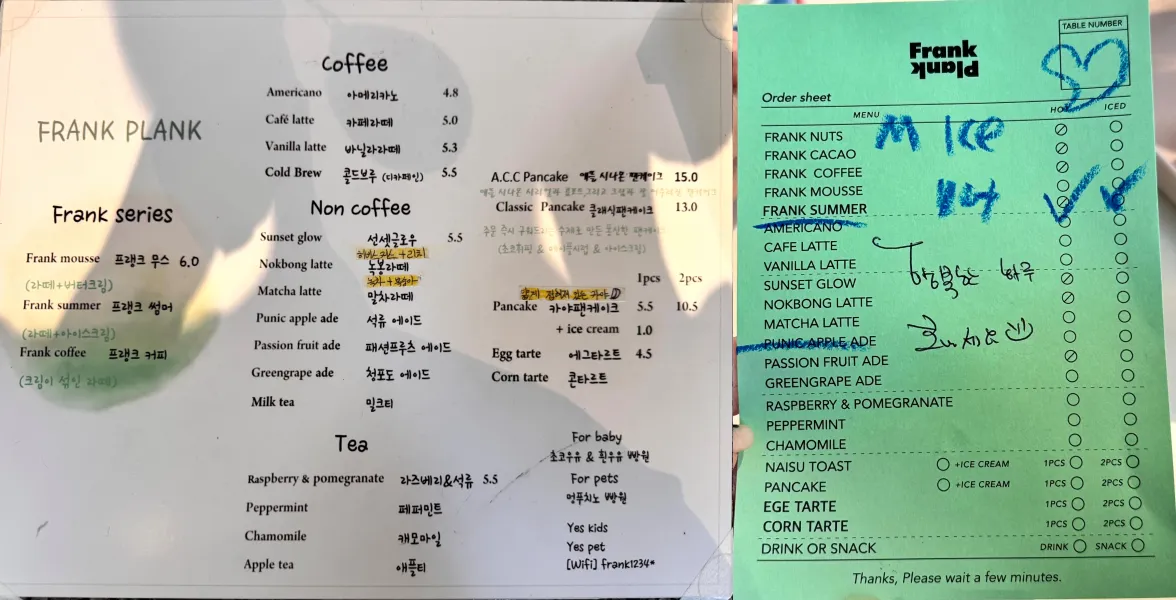 FRANK PLANK
Frank series
Frank mousse 프랭크 무스 6.0
(라떼+버터크림)
Frank summer 프랭크 썸머
(라떼+아이스크림)
Frank coffee 프랭크 커피
(크림이 섞인 라떼)
Coffee
Americano 아메리카노 4.8
Café latte 카페라떼 5.0
Vanilla latte 바닐라라떼 5.3
Cold Brew 콜드브루 (디카페인) 5.5
Non coffee
Sunset glow 선셋글로우 5.5
Nokbong latte 녹봉라떼
Matcha latte 말차라떼
Punic apple ade 석류 에이드
Passion fruit ade 패션프루츠 에이드
Greengrape ade 청포도 에이드
Milk tea 밀크티
Tea
Raspberry & pomegranate 라즈베리&석류 5.5
Peppermint 페퍼민트
Chamomile 캐모마일
Apple tea 애플티
A.C.C Pancake 애플 시나몬 팬케이크 15.0
Classic Pancake 클래식팬케이크 13.0
(초코휘핑 & 메이플시럽 & 아이스크림)
1pcs 2pcs
Pancake 카야팬케이크 5.5 10.5
+ ice cream 1.0
Egg tarte 에그타르트 4.5
Corn tarte 콘타르트
For baby
초코우유 & 흰우유 빵원
For pets
멍푸치노 빵원
Yes kids
Yes pet
[Wifi] frank1234*
Frank
plank
TABLE NUMBER
Order sheet
MENU HOT ICED
FRANK NUTS
M ICE
FRANK CACAO
FRANK COFFEE
FRANK MOUSSE
FRANK SUMMER
AMERICANO
CAFE LATTE
VANILLA LATTE
SUNSET GLOW
NOKBONG LATTE
MATCHA LATTE
PUNIC APPLE ADE
PASSION FRUIT ADE
GREENGRAPE ADE
RASPBERRY & POMEGRANATE
PEPPERMINT
CHAMOMILE
NAISU TOAST +ICE CREAM 1PCS 2PCS
PANCAKE +ICE CREAM 1PCS 2PCS
EGE TARTE 1PCS 2PCS
CORN TARTE 1PCS 2PCS
DRINK OR SNACK DRINK SNACK
Thanks, Please wait a few minutes.